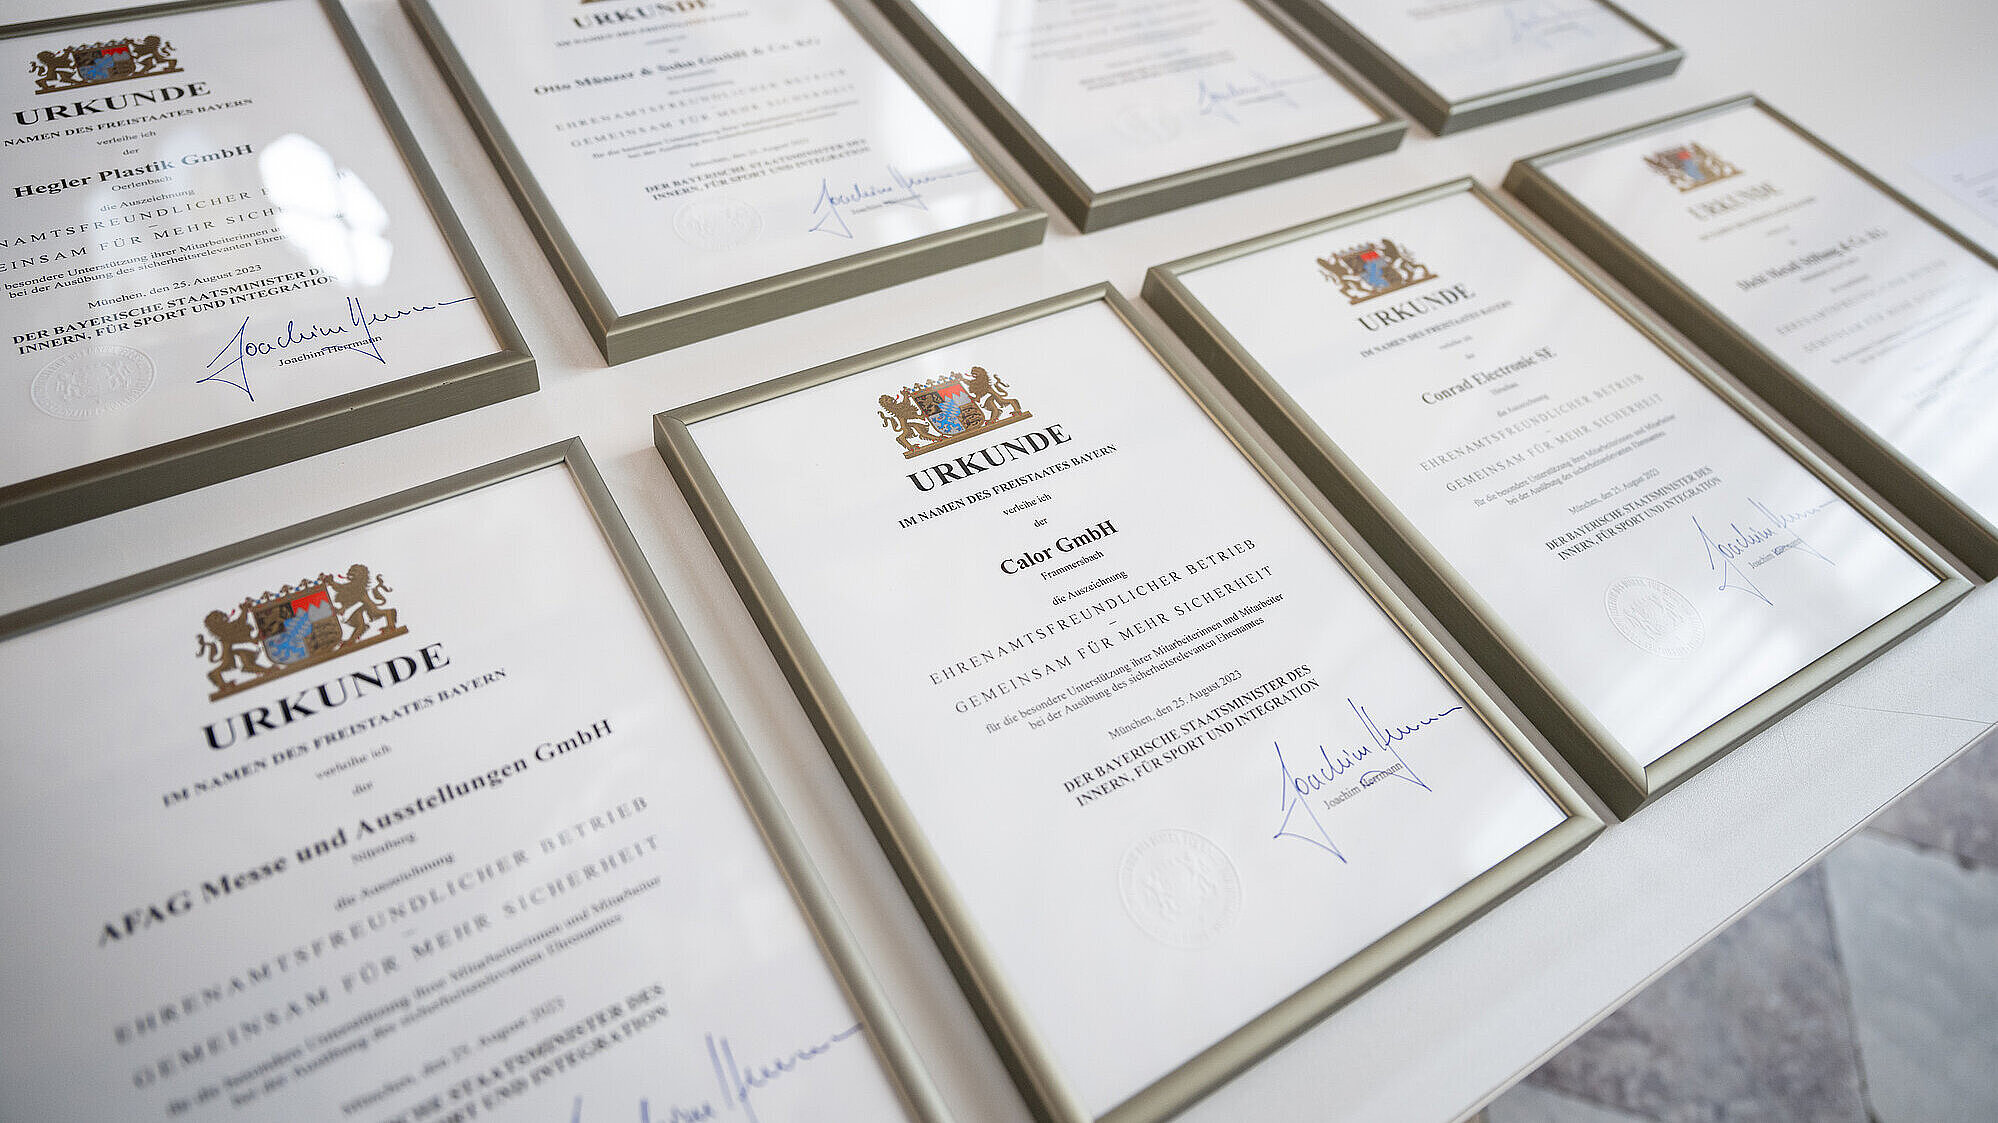 URKUNDE
NAMEN DES FREISTAATES BAYERN
verleihe ich
der
Hegler Plastik GmbH
Oerlenbach
die Auszeichnung
NAMTSFREUNDLICHER
EINSAM FÜR MEHR SICHE
besondere Unterstützung ihrer Mitarbeiterinnen
bei der Ausübung des sicherheitsrelevanten
München, den 25. August 2023
DER BAYERISCHE STAATSMINISTER
INNERN, FÜR SPORT UND INTEGRATION
Joachim Herrmann
Joachim Herrmann
URKUNDE
IM NAMEN DES FREISTAATES BAYERN
Otto Münzer & Sohn GmbH & Co. KG
EHRENAMTSFREUNDLICHER BETRIEB
GEMEINSAM FÜR MEHR SICHERHEIT
München, den 25. August 2023
DER BAYERISCHE STAATSMINISTER DES
INNERN, FÜR SPORT UND INTEGRATION
Joachim Herrmann
URKUNDE
IM NAMEN DES FREISTAATES BAYERN
verleihe ich
der
AFAG Messe und Ausstellungen GmbH
Nürnberg
die Auszeichnung
EHRENAMTSFREUNDLICHER BETRIEB
–
GEMEINSAM FÜR MEHR SICHERHEIT
für die besondere Unterstützung ihrer Mitarbeiterinnen und Mitarbeiter
bei der Ausübung des sicherheitsrelevanten Ehrenamtes
München, den 25. August 2023
SCHE STAATSMINISTER DES
PORT UND INTEGRATION
URKUNDE
IM NAMEN DES FREISTAATES BAYERN
verleihe ich
der
Calor GmbH
Frammersbach
die Auszeichnung
EHRENAMTSFREUNDLICHER BETRIEB
–
GEMEINSAM FÜR MEHR SICHERHEIT
für die besondere Unterstützung ihrer Mitarbeiterinnen und Mitarbeiter
bei der Ausübung des sicherheitsrelevanten Ehrenamtes
München, den 25. August 2023
DER BAYERISCHE STAATSMINISTER DES
INNERN, FÜR SPORT UND INTEGRATION
Joachim Herrmann
Joachim Herrmann
URKUNDE
IM NAMEN DES FREISTAATES BAYERN
verleihe ich
der
Conrad Electronic SE
Hirschau
die Auszeichnung
EHRENAMTSFREUNDLICHER BETRIEB
–
GEMEINSAM FÜR MEHR SICHERHEIT
für die besondere Unterstützung ihrer Mitarbeiterinnen und Mitarbeiter
bei der Ausübung des sicherheitsrelevanten Ehrenamtes
München, den 25. August 2023
DER BAYERISCHE STAATSMINISTER DES
INNERN, FÜR SPORT UND INTEGRATION
Joachim Herrmann
Joachim Herrmann
URKUNDE